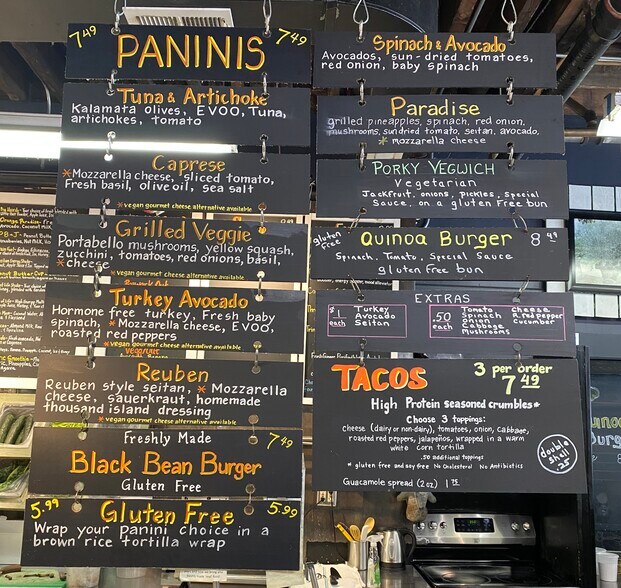 7.49 PANINIS 7.49
Tuna & Artichoke
Kalamata olives, EVOO, Tuna,
artichokes, tomato
Caprese
*Mozzarella cheese, sliced tomato,
Fresh basil, olive oil, sea salt
*vegan gourmet cheese alternative available
Grilled Veggie
Portabello mushrooms, yellow squash,
zucchini, tomatoes, red onions, basil,
*cheese
*vegan gourmet cheese alternative available
Turkey Avocado
Hormone free turkey, Fresh baby
spinach, *Mozzarella cheese, EVOO,
roasted red peppers
*vegan gourmet cheese alternative available
Reuben
Reuben style seitan, *Mozzarella
cheese, sauerkraut, homemade
thousand island dressing
*vegan gourmet cheese alternative available
Freshly Made 7.49
Black Bean Burger
Gluten Free
5.99 Gluten Free 5.99
Wrap your panini choice in a
brown rice tortilla wrap
Spinach & Avocado
Avocados, sun-dried tomatoes,
red onion, baby spinach
Paradise
grilled pineapples, spinach, red onion,
mushrooms, sundried tomato, seitan, avocado,
*mozzarella cheese
Porky Vegwich
Vegetarian
Jackfruit, onions, pickles, Special
Sauce, on a gluten Free bun
gluten Free Quinoa Burger 8 49
Spinach, Tomato, Special Sauce
gluten Free bun
EXTRAS
$1 each
Turkey
Avocado
Seitan
.50 each
Tomato Cheese
Spinach R.red pepper
Onion Cucumber
Cabbage
Mushrooms
TACOS 3 per order
7 49
High Protein seasoned crumbles*
Choose 3 toppings:
cheese (dairy or non-dairy), tomatoes, onion, cabbage,
roasted red peppers, jalapeños, wrapped in a warm
white corn tortilla
.50 additional toppings
* gluten free and soy free No Cholesterol No Antibiotics
double
shell
.25
Guacamole spread (2oz) 1 75